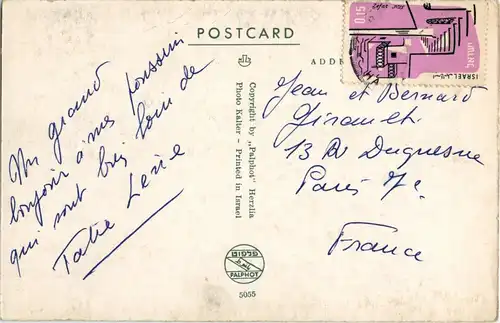 POSTCARD
ADDRE
Un grand
bonjour à mes poussins
qui sont bien loin de
Tatie Lène
Copyright by „Palphot” Herzlia
Photo Kalter – Printed in Israel
פלפוט
PALPHOT
5055
0.15
ISRAEL
ישראל
Jean et Bernard
Girault
13 Av Duquesne
Paris 7e
France